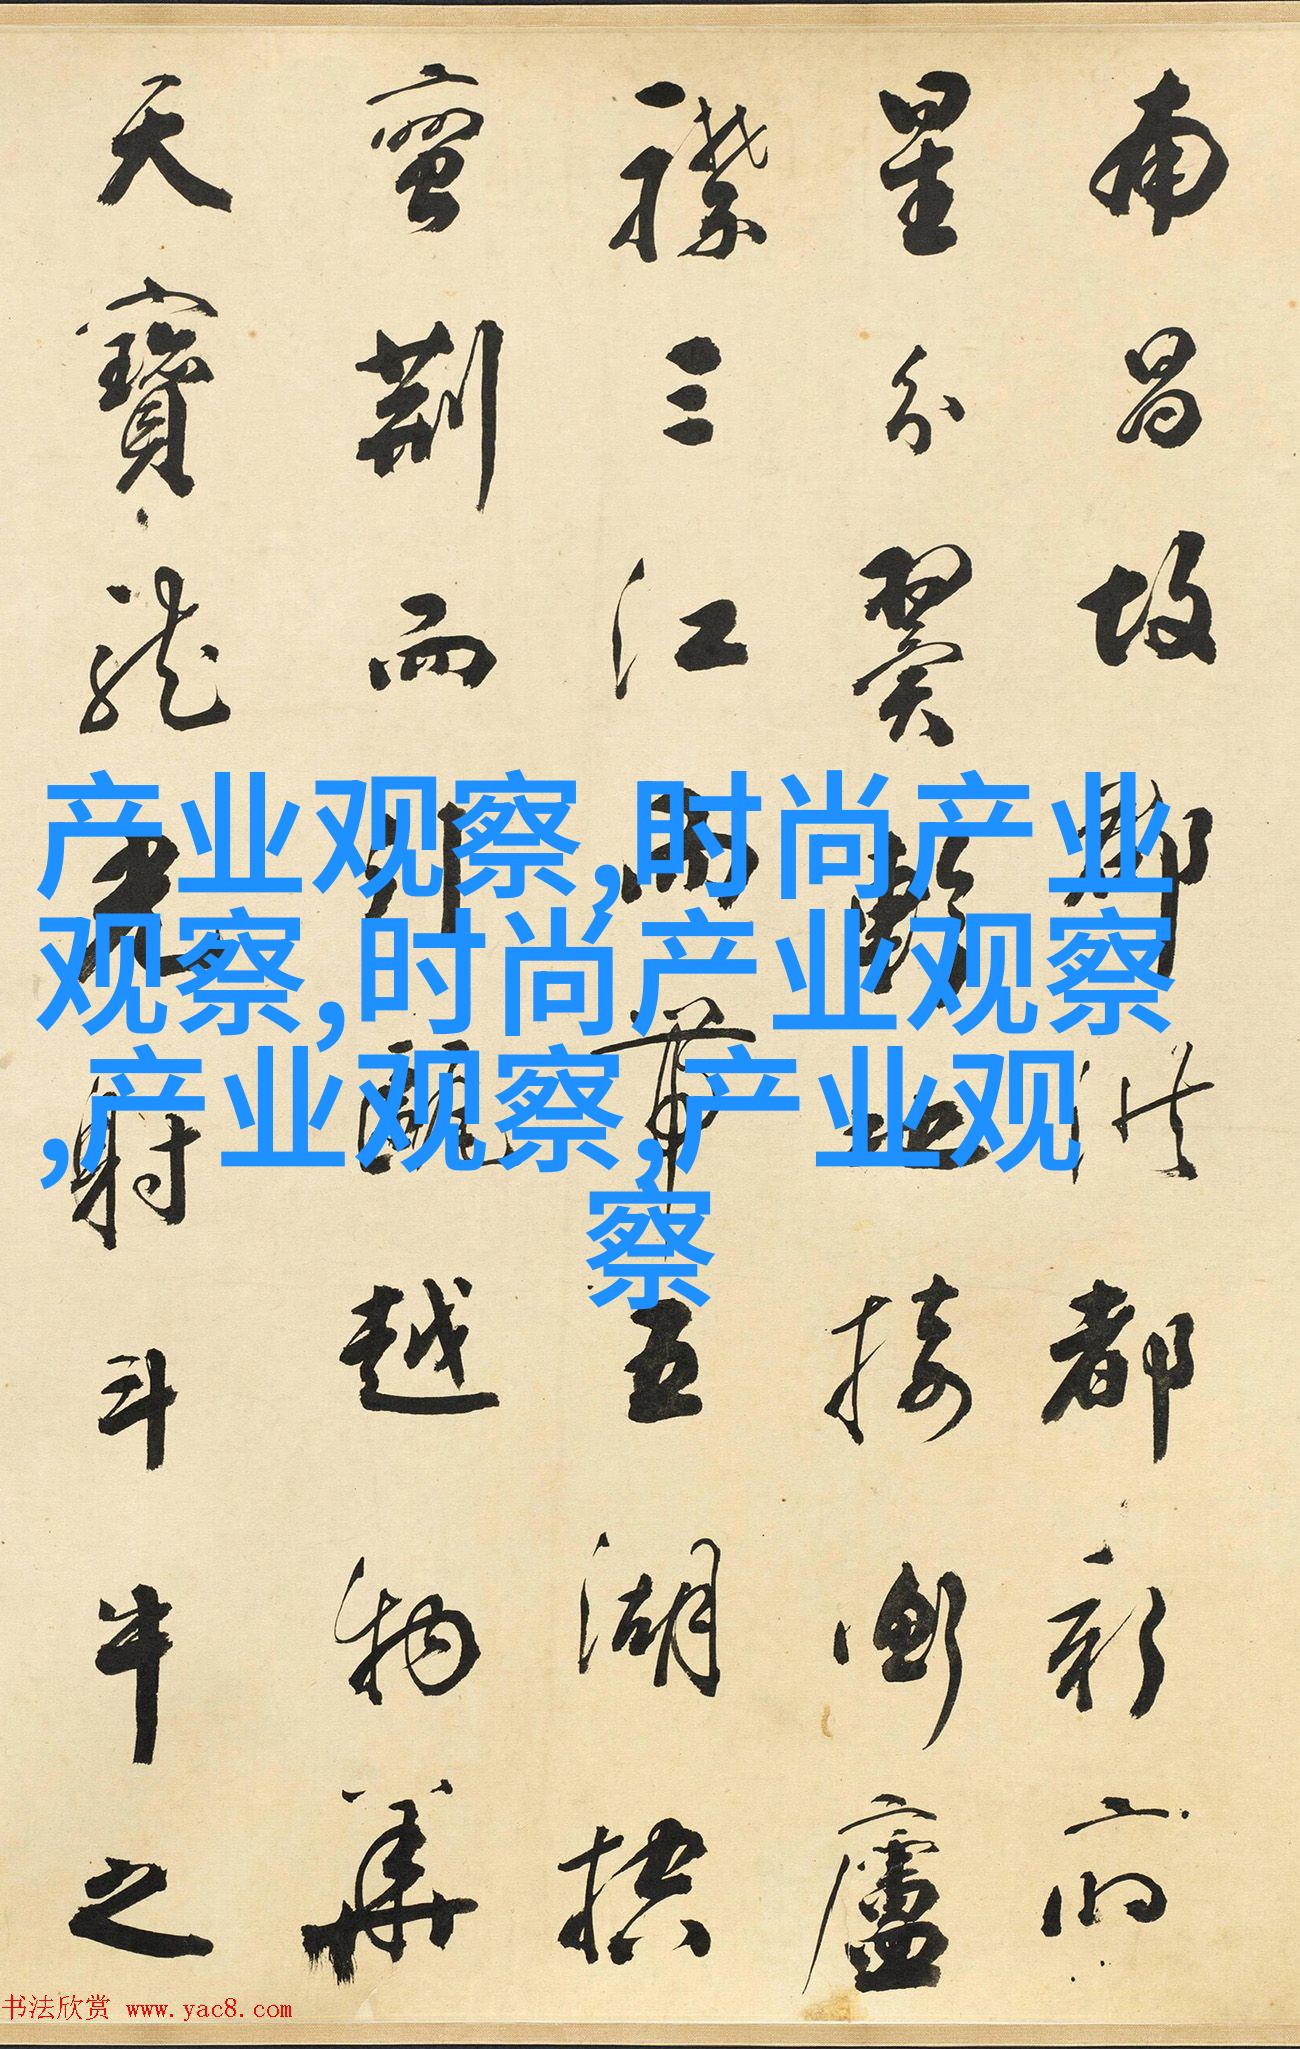 南昌故郡洪都新府
星分翼軫地接衡廬
襟三江而帶五湖控
蠻荆而引甌越物華
天寶龍光射斗牛之
产业观察,时尚产业
观察,时尚产业观察
,产业观察,产业观
察
书法欣赏 www.yac8.com